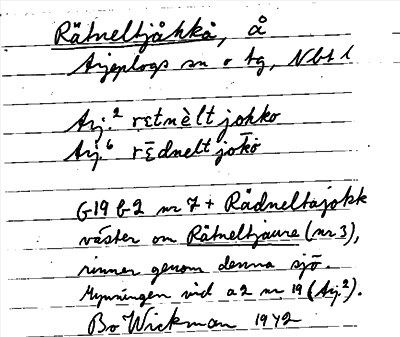 Rätneltjåkkå, å
Arjeplogs sn o tg, Nbt l
Arj.² rɛtnèlt jokko
Arj.⁶ rēdnelt jokō
G19 b2 nr 7 + Rådneltajokk
väster om Råtneltjaure (nr 3),
rinner genom denna sjö.
Mynningen vid a2 nr 19 (Arj.²).
Bo Wickman 1942